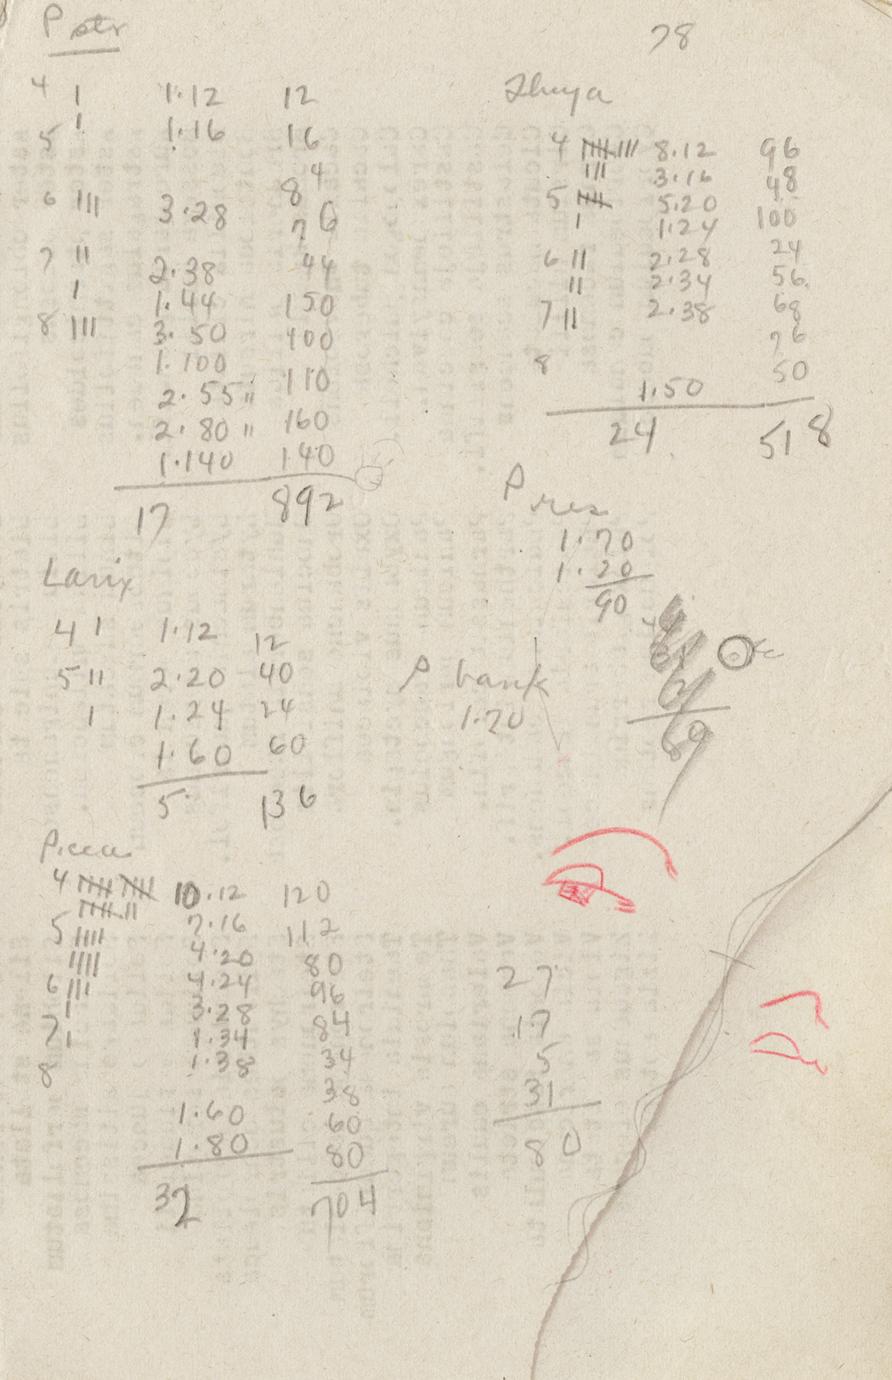 P str
4 1 1·12 12
5 1 1·16 16
84
6 III 3·28 76
7 II 2·38 44
1 1·44 150
8 III 3·50 100
1·100
2·55 II 110
2·80 II 160
1·140 140
17 892
Larix
4 1 1·12 12
5 II 2·20 40
1 1·24 24
1·60 60
5 136
Picea
4 10·12 120
5 7·16 112
IIII 4·20 80
IIII 4·24 96
6 III 3·28 84
7 1 1·34 34
1 1·38 38
8
1·60 60
1·80 80
32 704
78
Thuya
4 8·12 96
III 3·16 48
5 5·20 100
1 1·24 24
6 II 2·28 56
II 2·34 68
7 II 2·38 76
8
1·50 50
24 518
P res
1·70
1·20
90
P bank
1·20
69
27
17
5
31
80